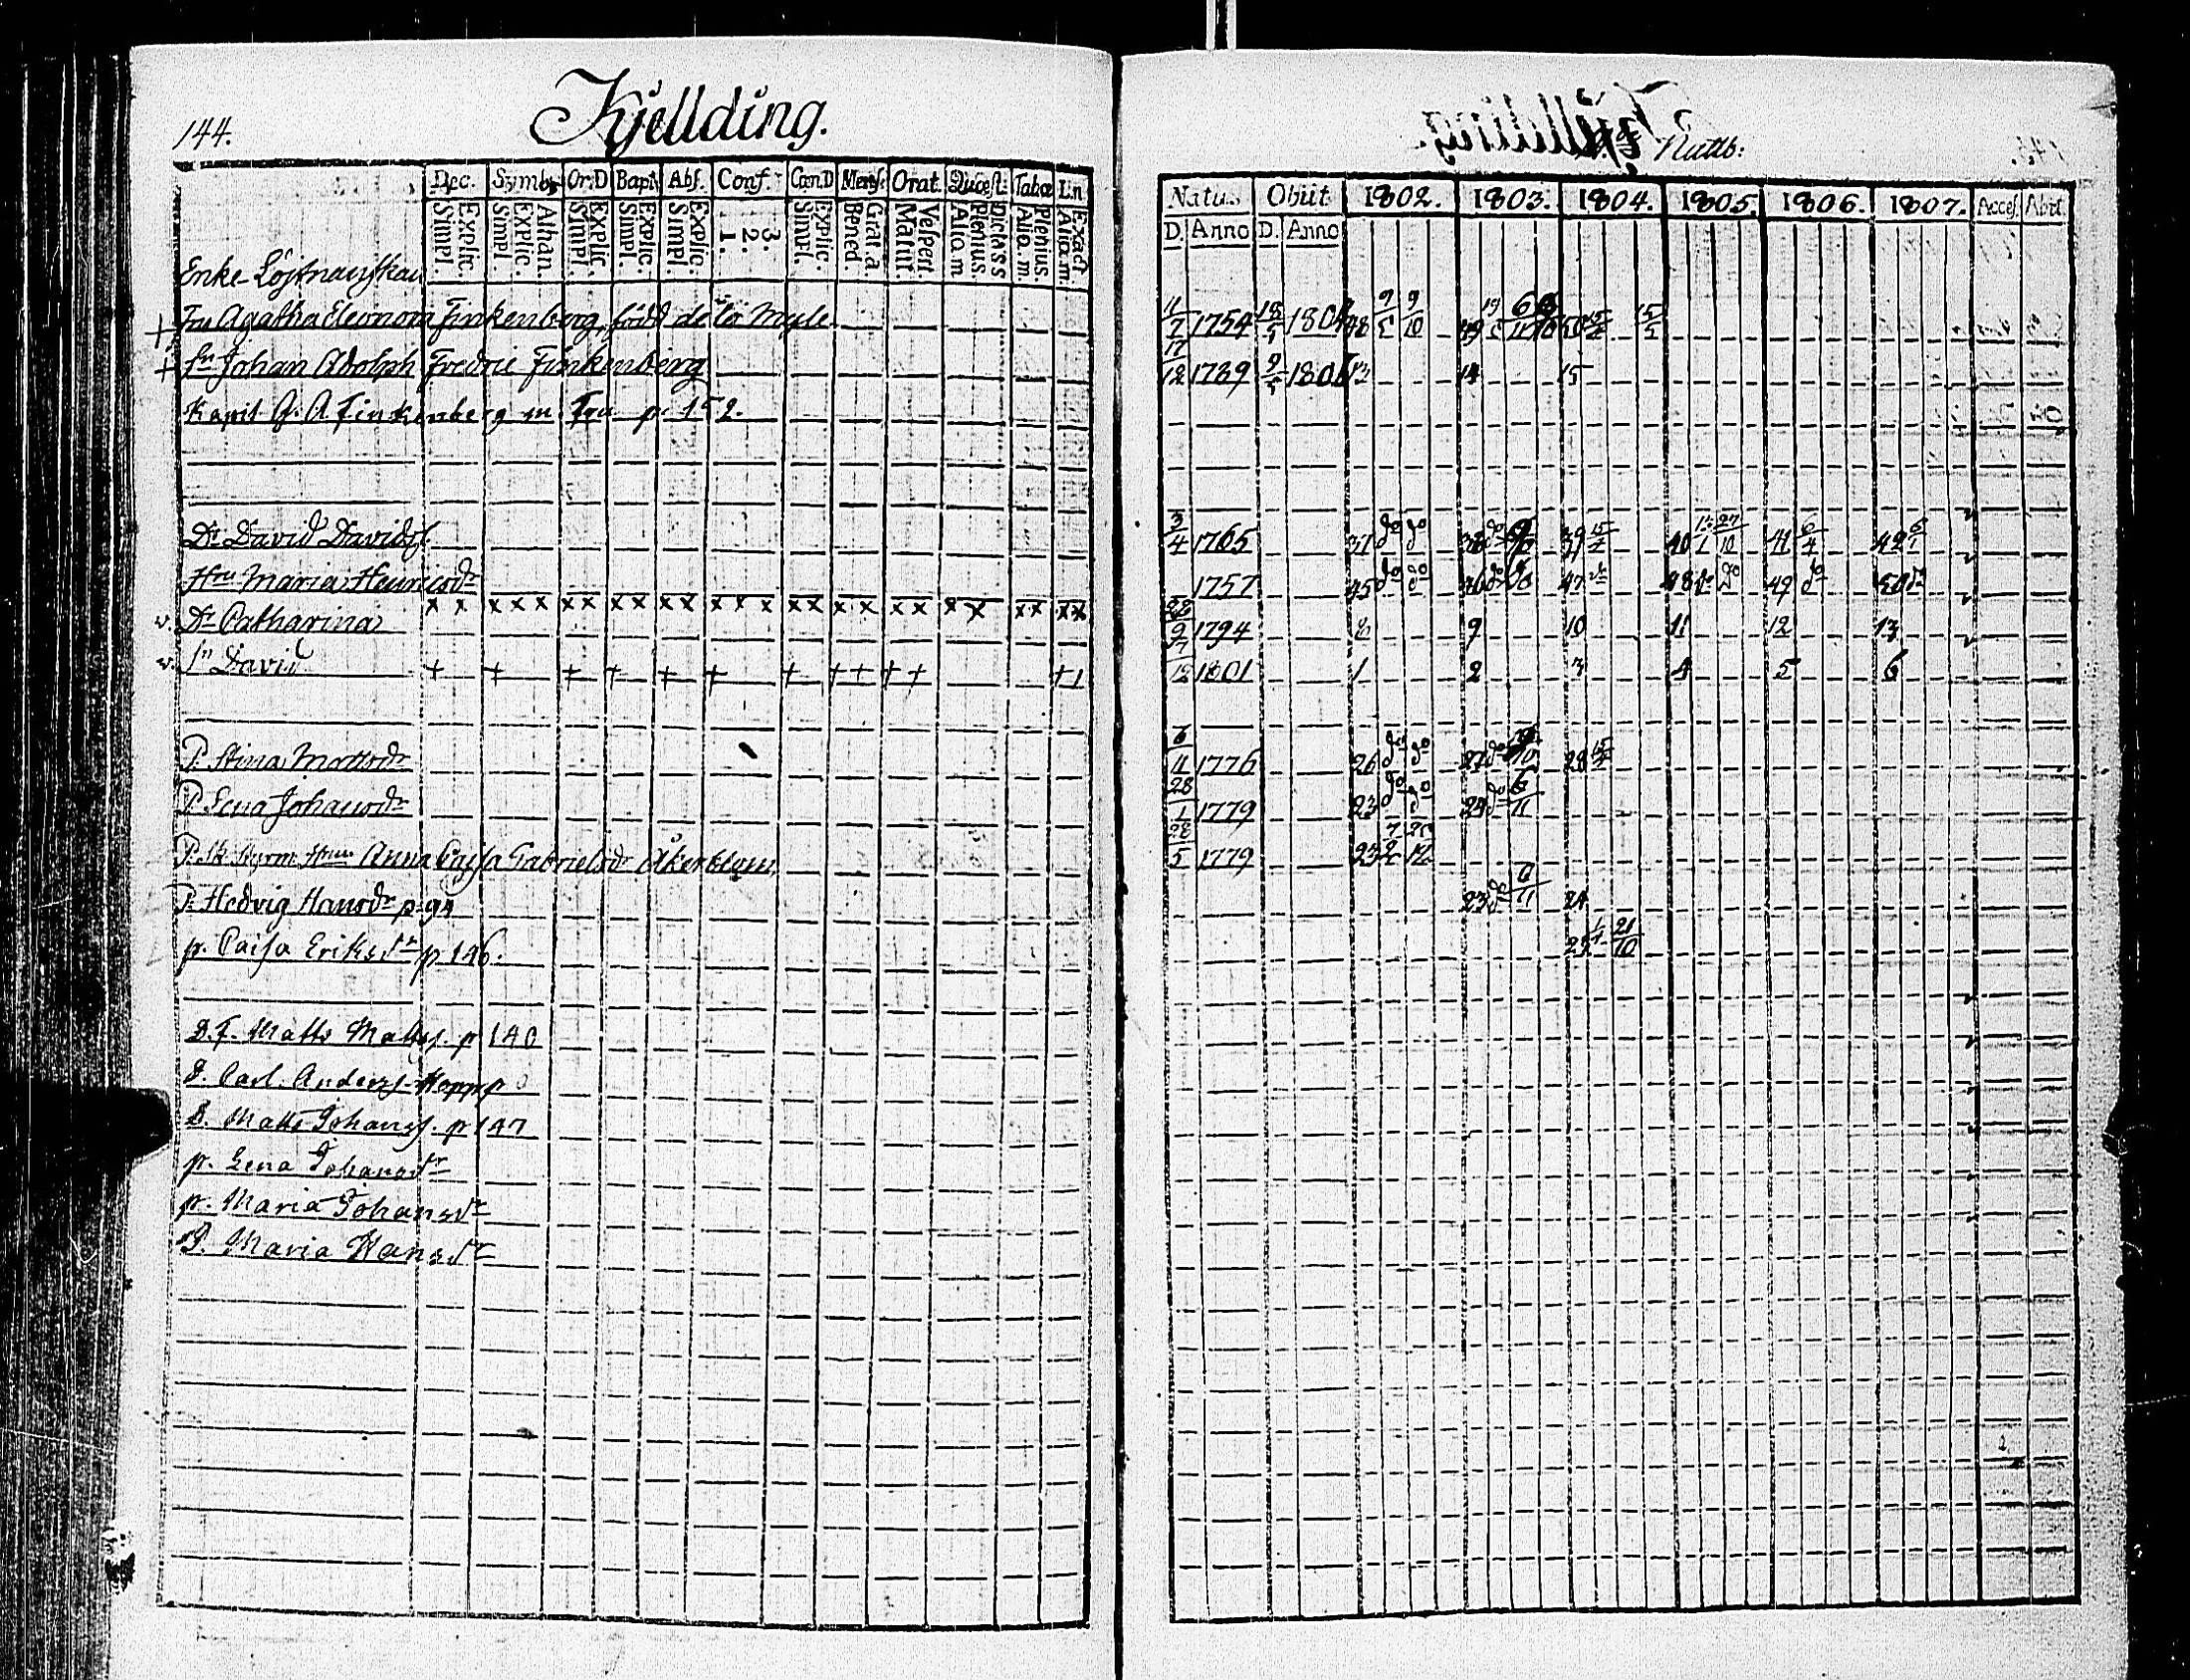 144.
Kjellding.
Dec. Symb. Or.D Bapt. Abs. Conf. Cæn.D Mens. Orat. Quæst. Tabæ L.n
Simpl. Explic. Simpl. Explic. Athan. Simpl. Explic. Simpl. Explic. Simpl. Explic. 1. 2. 3. Simpl. Explic. Bened. Grat.a. Matut. Vespert. Aliq.m Plenius Dict.a s.s Aliq.m. Plenius Aliq.m. Exact
Enke-Löjtnanskan
+ Fru Agatha Eleonora Finkenberg, född de la Myle
+ Sn Johan Adolph Fredric Finkenberg
Kapit G. A Finkenberg m. Fru p. 152.
Dr David Davidss
Hru Maria Henricsdr
v. Dr Catharina x x x x x x x x x x x x x x x x x x x x x x x x x x
v. Sn David + + + + + + + + + + + + 1
P. Stina Mattsdr
P. Lena Johansdr
P. Anna Cajsa Gabrielsdr Åkerblom
P. Hedvig Hansdr p. 94
p. Caisa Eriksdr p 146.
D.f. Matts Matss. p 140
D. Carl. Anderss. Hopp p
D. Matts Johanss. p 147
p. Lena Johansdr
p. Maria Johansdr
P. Maria Hansdr
Kjellding
Rustb:
Natus Obiit 1802. 1803. 1804. 1805. 1806. 1807. Access. Abiit
D. Anno D. Anno
11/7 1754 15/5 1804 48 9/5 9/10 49 19/5 6/11 50 15/2 15/5
17/12 1789 9/5 1801 13 14 15
3/4 1765 37 do do 38 do 39 15/2 40 27/10 41 6/4 42 6/1
1757 45 do do 46 do 47 48 do do 49 do 50 do
28/9 1794 8 9 10 11 12 13
7/12 1801 1 2 3 4 5 6
6/11 1776 26 do do 27 do 28 15/2
28/1 1779 23 do do 24 do 6/11
28/5 1779 23
23 do 6/11 24
25 21/10